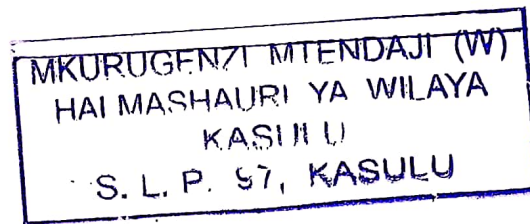 MKURUGENZI MTENDAJI (W)
HALMASHAURI YA WILAYA
KASULU
S. L. P. 97, KASULU